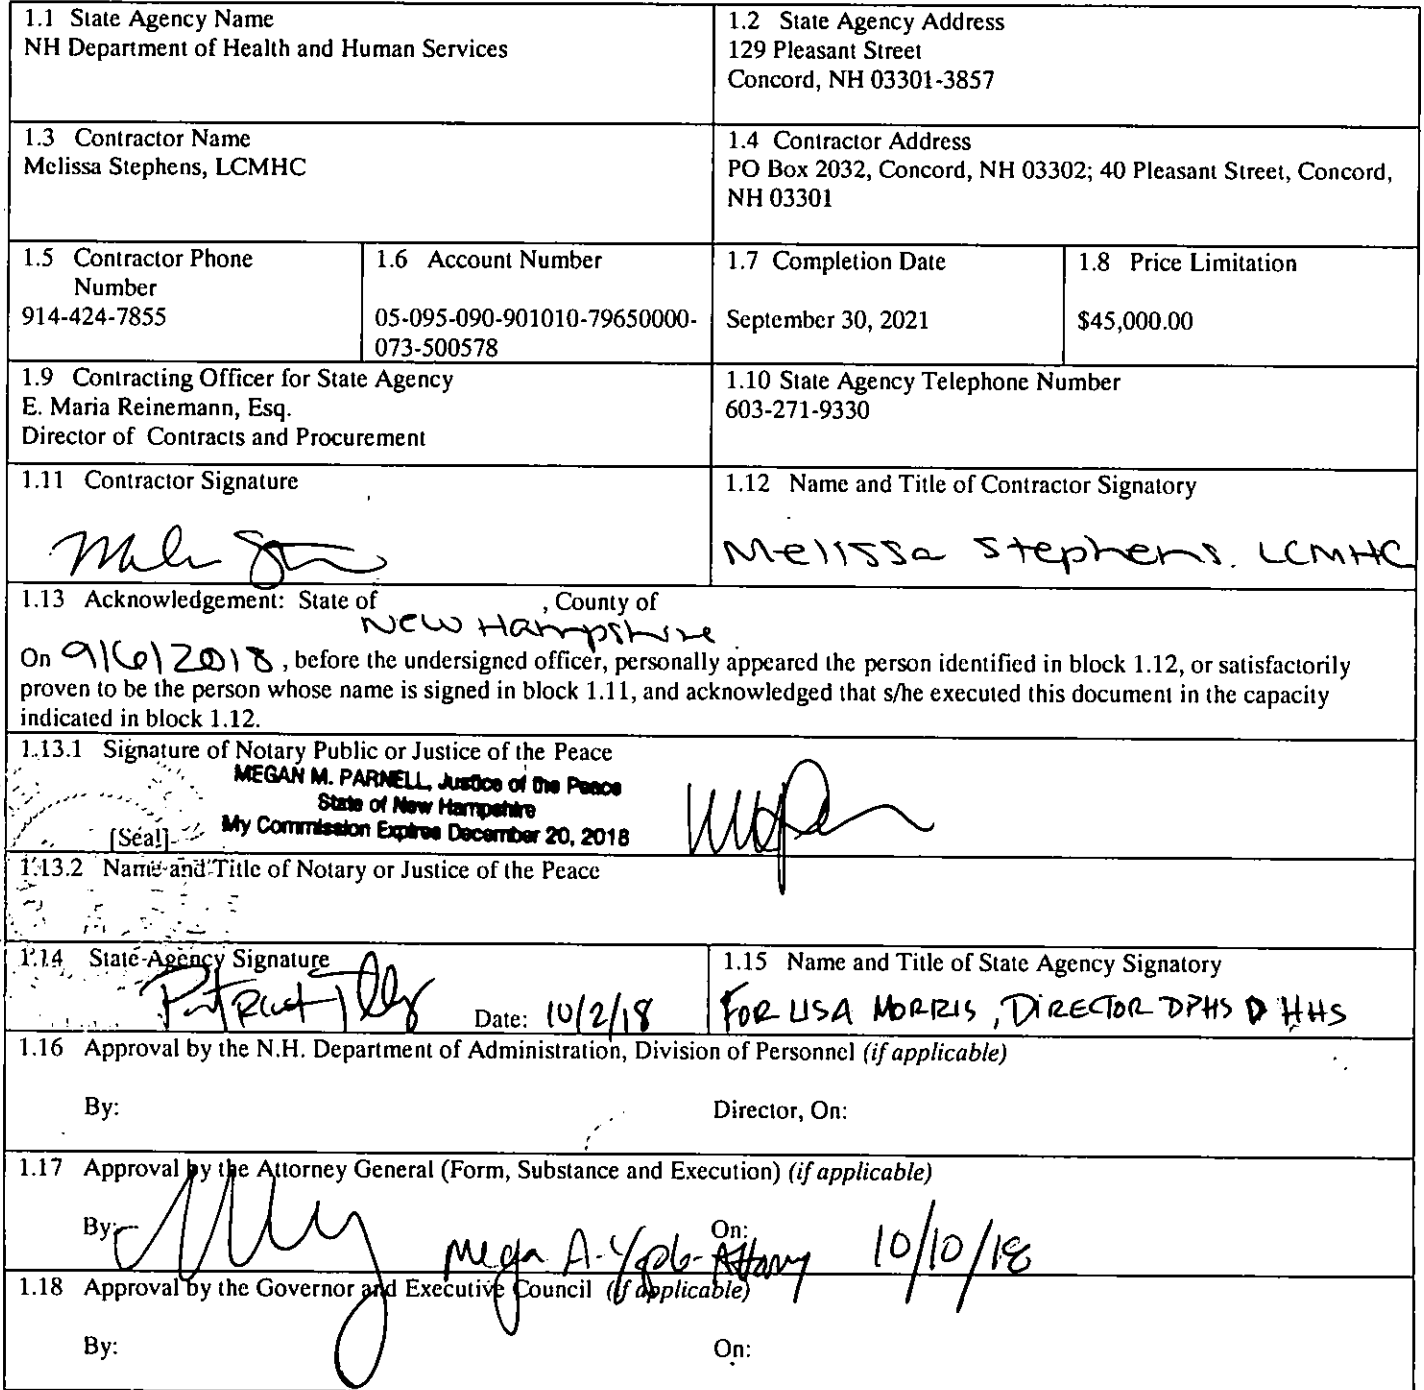 1.1 State Agency Name
NH Department of Health and Human Services
1.2 State Agency Address
129 Pleasant Street
Concord, NH 03301-3857
1.3 Contractor Name
Melissa Stephens, LCMHC
1.4 Contractor Address
PO Box 2032, Concord, NH 03302; 40 Pleasant Street, Concord,
NH 03301
1.5 Contractor Phone
Number
914-424-7855
1.6 Account Number
05-095-090-901010-79650000-
073-500578
1.7 Completion Date
September 30, 2021
1.8 Price Limitation
$45,000.00
1.9 Contracting Officer for State Agency
E. Maria Reinemann, Esq.
Director of Contracts and Procurement
1.10 State Agency Telephone Number
603-271-9330
1.11 Contractor Signature
1.12 Name and Title of Contractor Signatory
Melissa Stephens. LCMHC
1.13 Acknowledgement: State of , County of
New Hampshire
On 9/6/2018, before the undersigned officer, personally appeared the person identified in block 1.12, or satisfactorily
proven to be the person whose name is signed in block 1.11, and acknowledged that s/he executed this document in the capacity
indicated in block 1.12.
1.13.1 Signature of Notary Public or Justice of the Peace
MEGAN M. PARNELL, Justice of the Peace
State of New Hampshire
My Commission Expires December 20, 2018
[Seal]
1.13.2 Name and Title of Notary or Justice of the Peace
1.14 State Agency Signature
Date: 10/2/18
1.15 Name and Title of State Agency Signatory
FOR LISA MORRIS, DIRECTOR DPHS DHHS
1.16 Approval by the N.H. Department of Administration, Division of Personnel (if applicable)
By:
Director, On:
1.17 Approval by the Attorney General (Form, Substance and Execution) (if applicable)
By:
On:
Attorney 10/10/18
1.18 Approval by the Governor and Executive Council (if applicable)
By:
On: